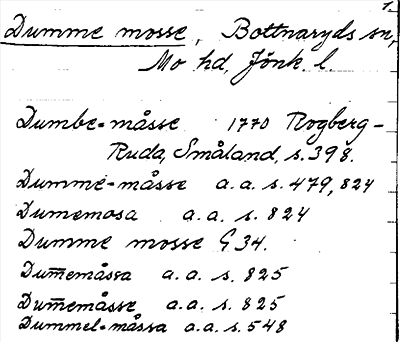 1.
Dumme mosse, Bottnaryds sn,
Mo hd, Jönk. l.
Dumbe-måsse 1770 Rogberg-
Ruda, Småland, s. 398.
Dumme-måsse a.a. s. 479, 824
Dumemosa a.a. s. 824
Dumme mosse G 34.
Dum̅emåssa a.a. s. 825
Dum̅emåsse a.a. s. 825
Dummel-måssa a.a. s. 548